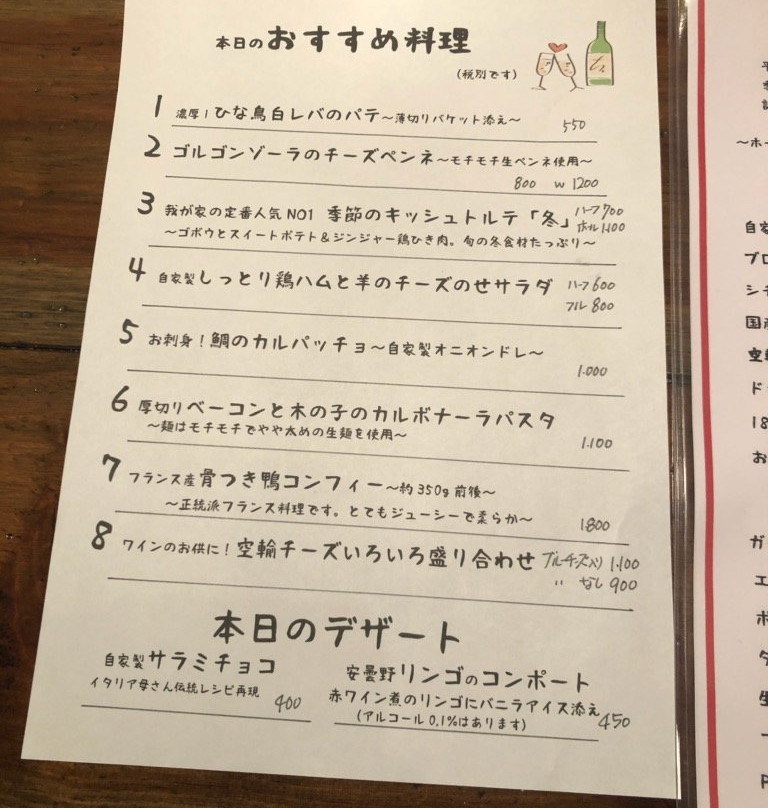 本日のおすすめ料理
(税別です)
1 濃厚!ひな鳥白レバのパテ~薄切りバケット添え~ 550
2 ゴルゴンゾーラのチーズペンネ~モチモチ生ペンネ使用~
800 W 1200
3 我が家の定番人気NO1 季節のキッシュトルテ「冬」 ハーフ700
ホール1100
~ゴボウとスイートポテト&ジンジャー鶏ひき肉。旬の冬食材たっぷり~
4 自家製しっとり鶏ハムと羊のチーズのせサラダ ハーフ600
フル800
5 お刺身!鯛のカルパッチョ~自家製オニオンドレ~
1.000
6 厚切りベーコンと木の子のカルボナーラパスタ
~麺はモチモチでやや太めの生麺を使用~
1.100
7 フランス産骨つき鴨コンフィー~約350g前後~
~正統派フランス料理です。とてもジューシーで柔らか~
1800
8 ワインのお供に!空輸チーズいろいろ盛り合わせ ブルーチーズ入り 1.100
〃 なし 900
本日のデザート
自家製サラミチョコ
イタリア母さん伝統レシピ再現
400
安曇野リンゴのコンポート
赤ワイン煮のリンゴにバニラアイス添え
(アルコール0.1%はあります)
450
~ホー
自家
ブロ
シチ
国産
空輸
ド
18
お
ガ
エ
ボ
タ
生
P